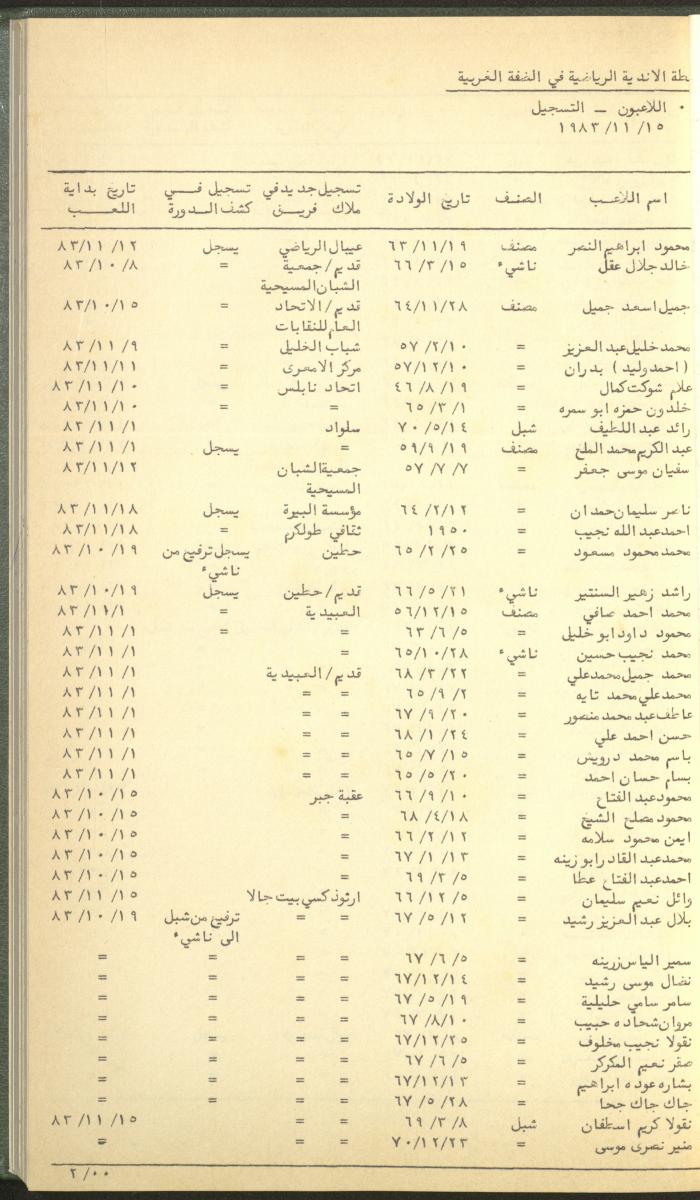 طة الاندية الرياضية في الضفة الغربية
٠ اللاعبون ــ التسجيل
١٩٨٣/١١/١٥
اسم اللاعب الصنف تاريخ الولادة تسجيل جديد في ملاك فريق تسجيل في كشف الدورة تاريخ بداية اللعب
محمود ابراهيم النصر مصنف ٦٣/١١/١٩ عيبال الرياضي يسجل ٨٣/١١/١٢
خالد جلال عقل ناشيء ٦٦/٣/١٥ قديم/جمعية = ٨٣/١٠/٨
الشبان المسيحية
جميل اسعد جميل مصنف ٦٤/١١/٢٨ قديم/الاتحاد = ٨٣/١٠/١٥
العام للنقابات
محمد خليل عبد العزيز = ٥٧/٢/١٠ شباب الخليل = ٨٣/١١/٩
(احمد وليد) بدران = ٥٧/١٢/١٠ مركز الامعرى = ٨٣/١١/١١
علام شوكت كمال = ٤٦/٨/١٩ اتحاد نابلس = ٨٣/١١/١٠
خلدون حمزه ابو سمره = ٦٥/٣/١ = = ٨٣/١١/١٠
رائد عبد اللطيف شبل ٧٠/٥/١٤ سلواد ٨٣/١١/١
عبد الكريم محمد الملح مصنف ٥٩/٩/١٩ = يسجل ٨٣/١١/١
سفيان موسى جعفر = ٥٧/٧/٧ جمعية الشبان ٨٣/١١/١٢
المسيحية
ناصر سليمان حمدان = ٦٤/٢/١٢ مؤسسة البيرة يسجل ٨٣/١١/١٨
احمد عبد الله نجيب = ١٩٥٠ ثقافي طولكرم = ٨٣/١١/١٨
محمد محمود مسعود = ٦٥/٢/٢٥ حطين يسجل ترفيع من ٨٣/١٠/١٩
ناشيء
راشد زهير السنتير ناشيء ٦٦/٥/٢١ قديم/حطين يسجل ٨٣/١٠/١٩
محمد احمد صافي مصنف ٥٦/١٢/١٥ العبيدية = ٨٣/١١/١
محمود داود ابو خليل = ٦٣/٦/٥ = = ٨٣/١١/١
محمد نجيب حسين ناشيء ٦٥/١٠/٢٨ = ٨٣/١١/١
محمد جميل محمد علي = ٦٨/٣/٢٢ قديم/العبيدية ٨٣/١١/١
محمد علي محمد تايه = ٦٥/٩/٢ = = ٨٣/١١/١
عاطف عبد محمد منصور = ٦٧/٩/٢٠ = = ٨٣/١١/١
حسن احمد علي = ٦٨/١/٢٤ = = ٨٣/١١/١
باسم محمد درويش = ٦٥/٧/١٥ = = ٨٣/١١/١
بسام حسان احمد = ٦٥/٥/٢٠ = = ٨٣/١١/١
محمود عبد الفتاح = ٦٦/٩/١٠ عقبة جبر ٨٣/١٠/١٥
محمود مصلح الشيخ = ٦٨/٤/١٨ = ٨٣/١٠/١٥
ايمن محمود سلامه = ٦٦/٢/١٢ = ٨٣/١٠/١٥
محمد عبد القادر ابو زينه = ٦٧/١/١٣ = ٨٣/١٠/١٥
احمد عبد الفتاح عطا = ٦٩/٣/٥ = ٨٣/١٠/١٥
وائل نعيم سليمان = ٦٦/١٢/٥ ارثوذكسي بيت جالا ٨٣/١١/١٥
بلال عبد العزيز رشيد = ٦٧/٥/١٢ = = ترفيع من شبل ٨٣/١٠/١٩
الى ناشيء
سمير الياس زرينه = ٦٧/٦/٥ = = = =
نضال موسى رشيد = ٦٧/١٢/١٤ = = = =
سامر سامي حليلية = ٦٧/٥/١٩ = = = =
مروان شحاده حبيب = ٦٧/٨/١٠ = = = =
نقولا نجيب مخلوف = ٦٧/١٢/٢٥ = = = =
صقر نعيم المكركر = ٦٧/٦/٥ = = = =
بشاره عوده ابراهيم = ٦٧/١٢/١٣ = = = =
جاك جاك جحا = ٦٧/٥/٢٨ = = = =
نقولا كريم اسطفان شبل ٦٩/٣/٨ = = ٨٣/١١/١٥
منير نصرى موسى = ٧٠/١٢/٢٣ = = =
٢/٠٠